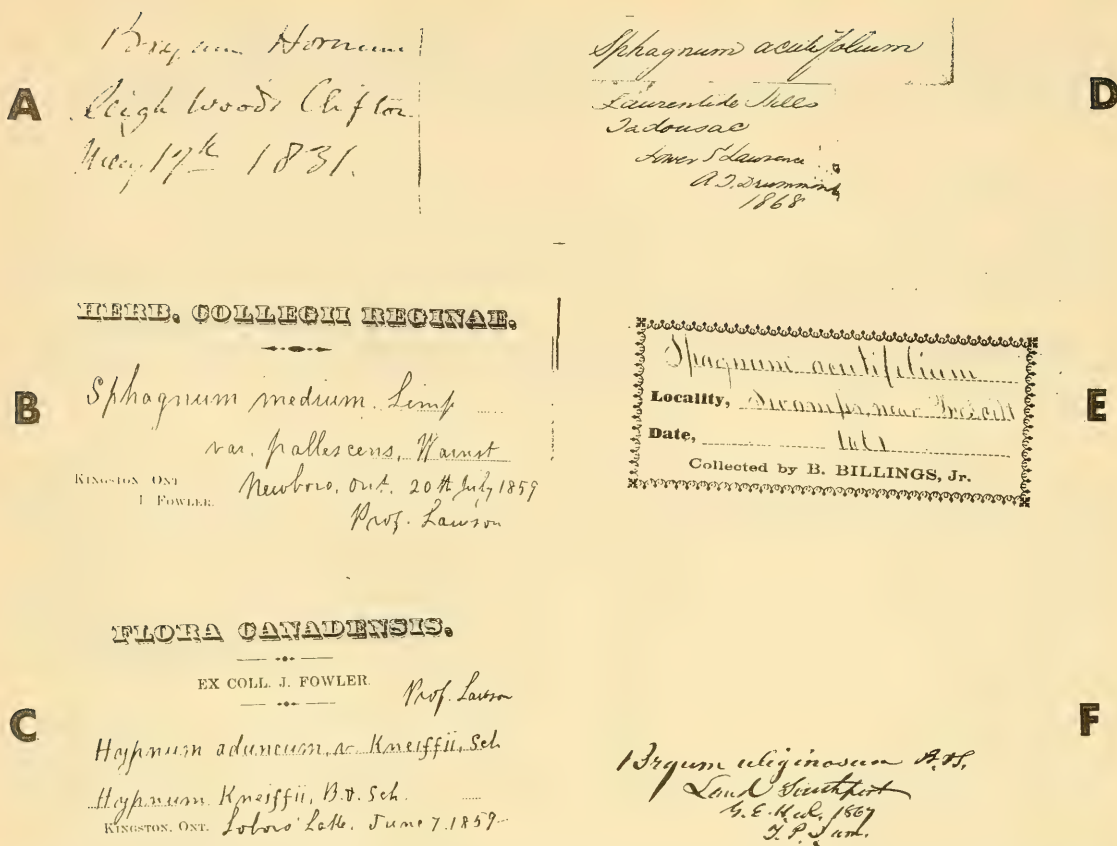 A
Bryum Hornum
Leigh Woods Clifton
May 17th 1831.
B
HERB. COLLEGII REGINAE.
Sphagnum medium. Limp
var. pallescens, Warnst
KINGSTON ONT
J FOWLER.
Newboro, Ont. 20th July 1859
Prof. Lawson
C
FLORA CANADENSIS.
EX COLL. J. FOWLER.
Prof. Lawson
Hypnum aduncum, v. Kneiffii, Sch
Hypnum Kneiffii, B.&. Sch.
KINGSTON, ONT. Loboro' Lake. June 7. 1859
D
Sphagnum acutifolium
Laurentide Hills
Tadousac
Lower St Lawrence
A.T. Drummond
1868
E
Spagnum acutifolium
Locality, Swamps, near Prescott
Date,
Collected by B. BILLINGS, Jr.
F
Bryum uliginosum
Southport
1867